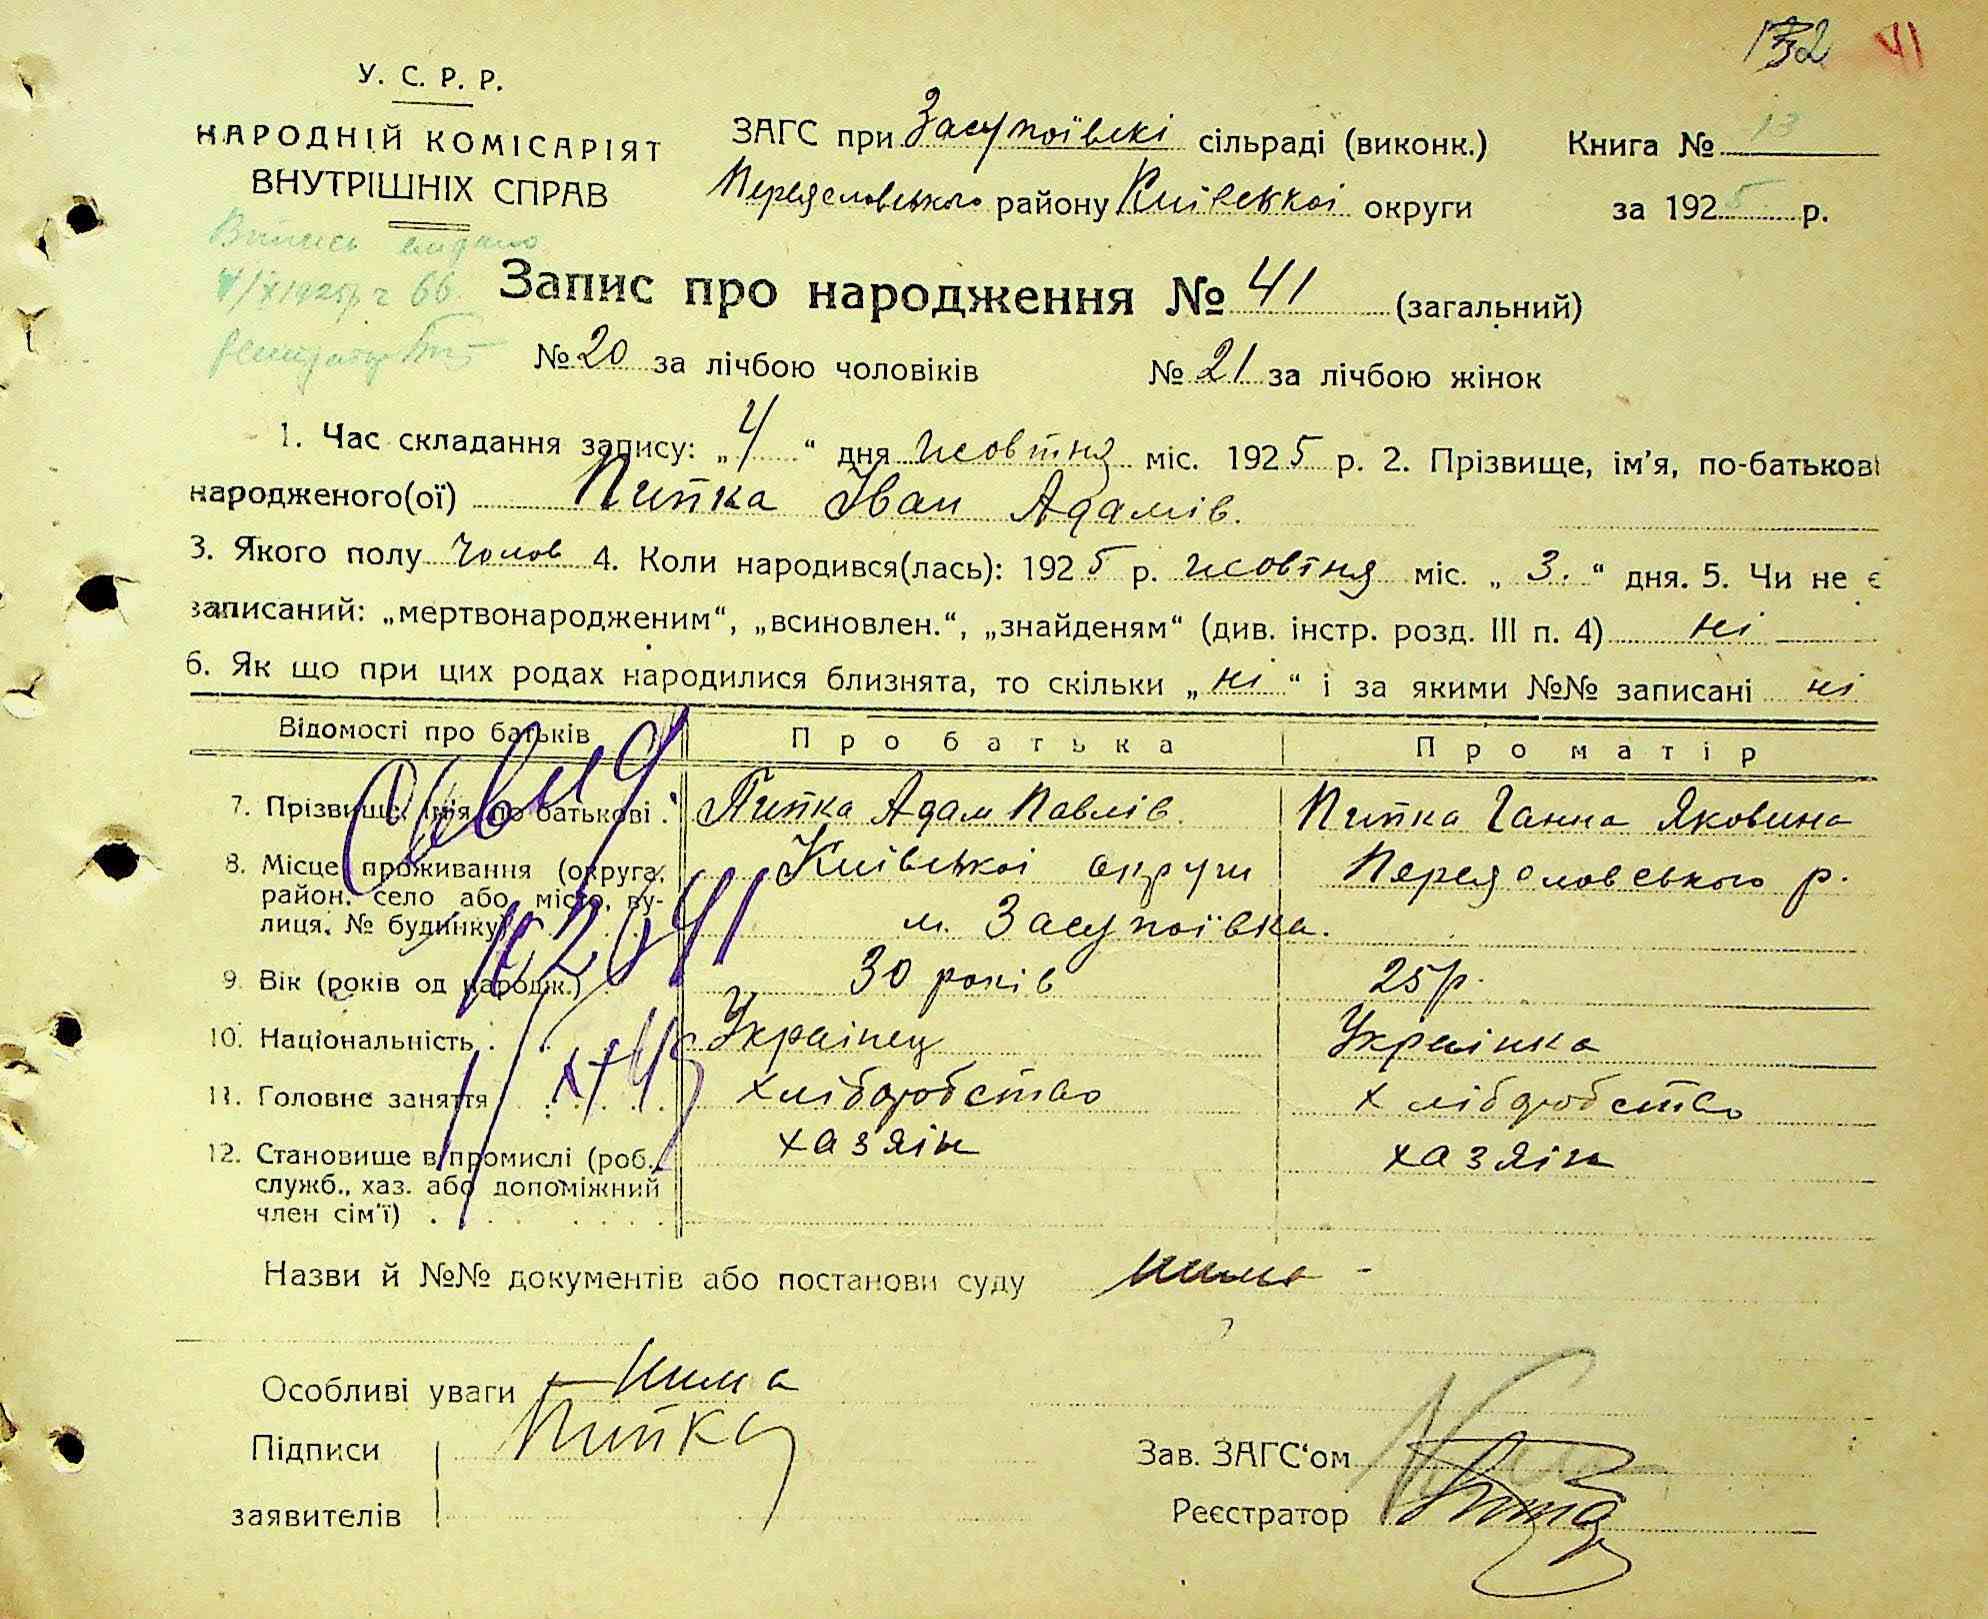 132 VI
У. С. Р. Р.
НАРОДНІЙ КОМІСАРІЯТ
ВНУТРІШНІХ СПРАВ
ЗАГС при Засупоївскі сільраді (виконк.)
Переясловського району Київскої округи
Книга № 13
за 1925 р.
Випись видано
Запис про народження № 41 (загальний)
№ 20 за лічбою чоловіків № 21 за лічбою жінок
1. Час складання запису: „4“ дня жовтня міс. 1925 р. 2. Прізвище, ім'я, по-батькові
народженого(ої) Пипка Іван Адамів.
3. Якого полу чолов 4. Коли народився(лась): 1925 р. жовтня міс. „3.“ дня. 5. Чи не є
записаний: „мертвонародженим“, „всиновлен.“, „знайденям“ (див. інстр. розд. III п. 4) ні
6. Як що при цих родах народилися близнята, то скільки „ні“ і за якими №№ записані ні
Відомості про батьків Про батька Про матір
7. Прізвище, ім'я, по батькові . Пипка Адам Павлів. Пипка Ганна Яковина
8. Місце проживання (округа, район, село або місто, вулиця, № будинку) Київської округи Переясловського р.
м. Засупоївка.
9. Вік (років од народж.) . 30 років 25 р.
10. Національність . Українец Українка
11. Головне заняття хліборобство хліборобство
12. Становище в промислі (роб., хазяїн хазяїн
служб., хаз. або допоміжний
член сім'ї) .
Назви й №№ документів або постанови суду нима -
Особливі уваги нима
Підписи Пипка
заявителів
Зав. ЗАГС'ом
Реєстратор